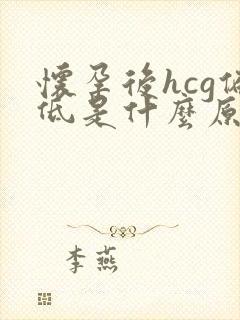 懷孕後hcg偏
低是什麼原
李燕